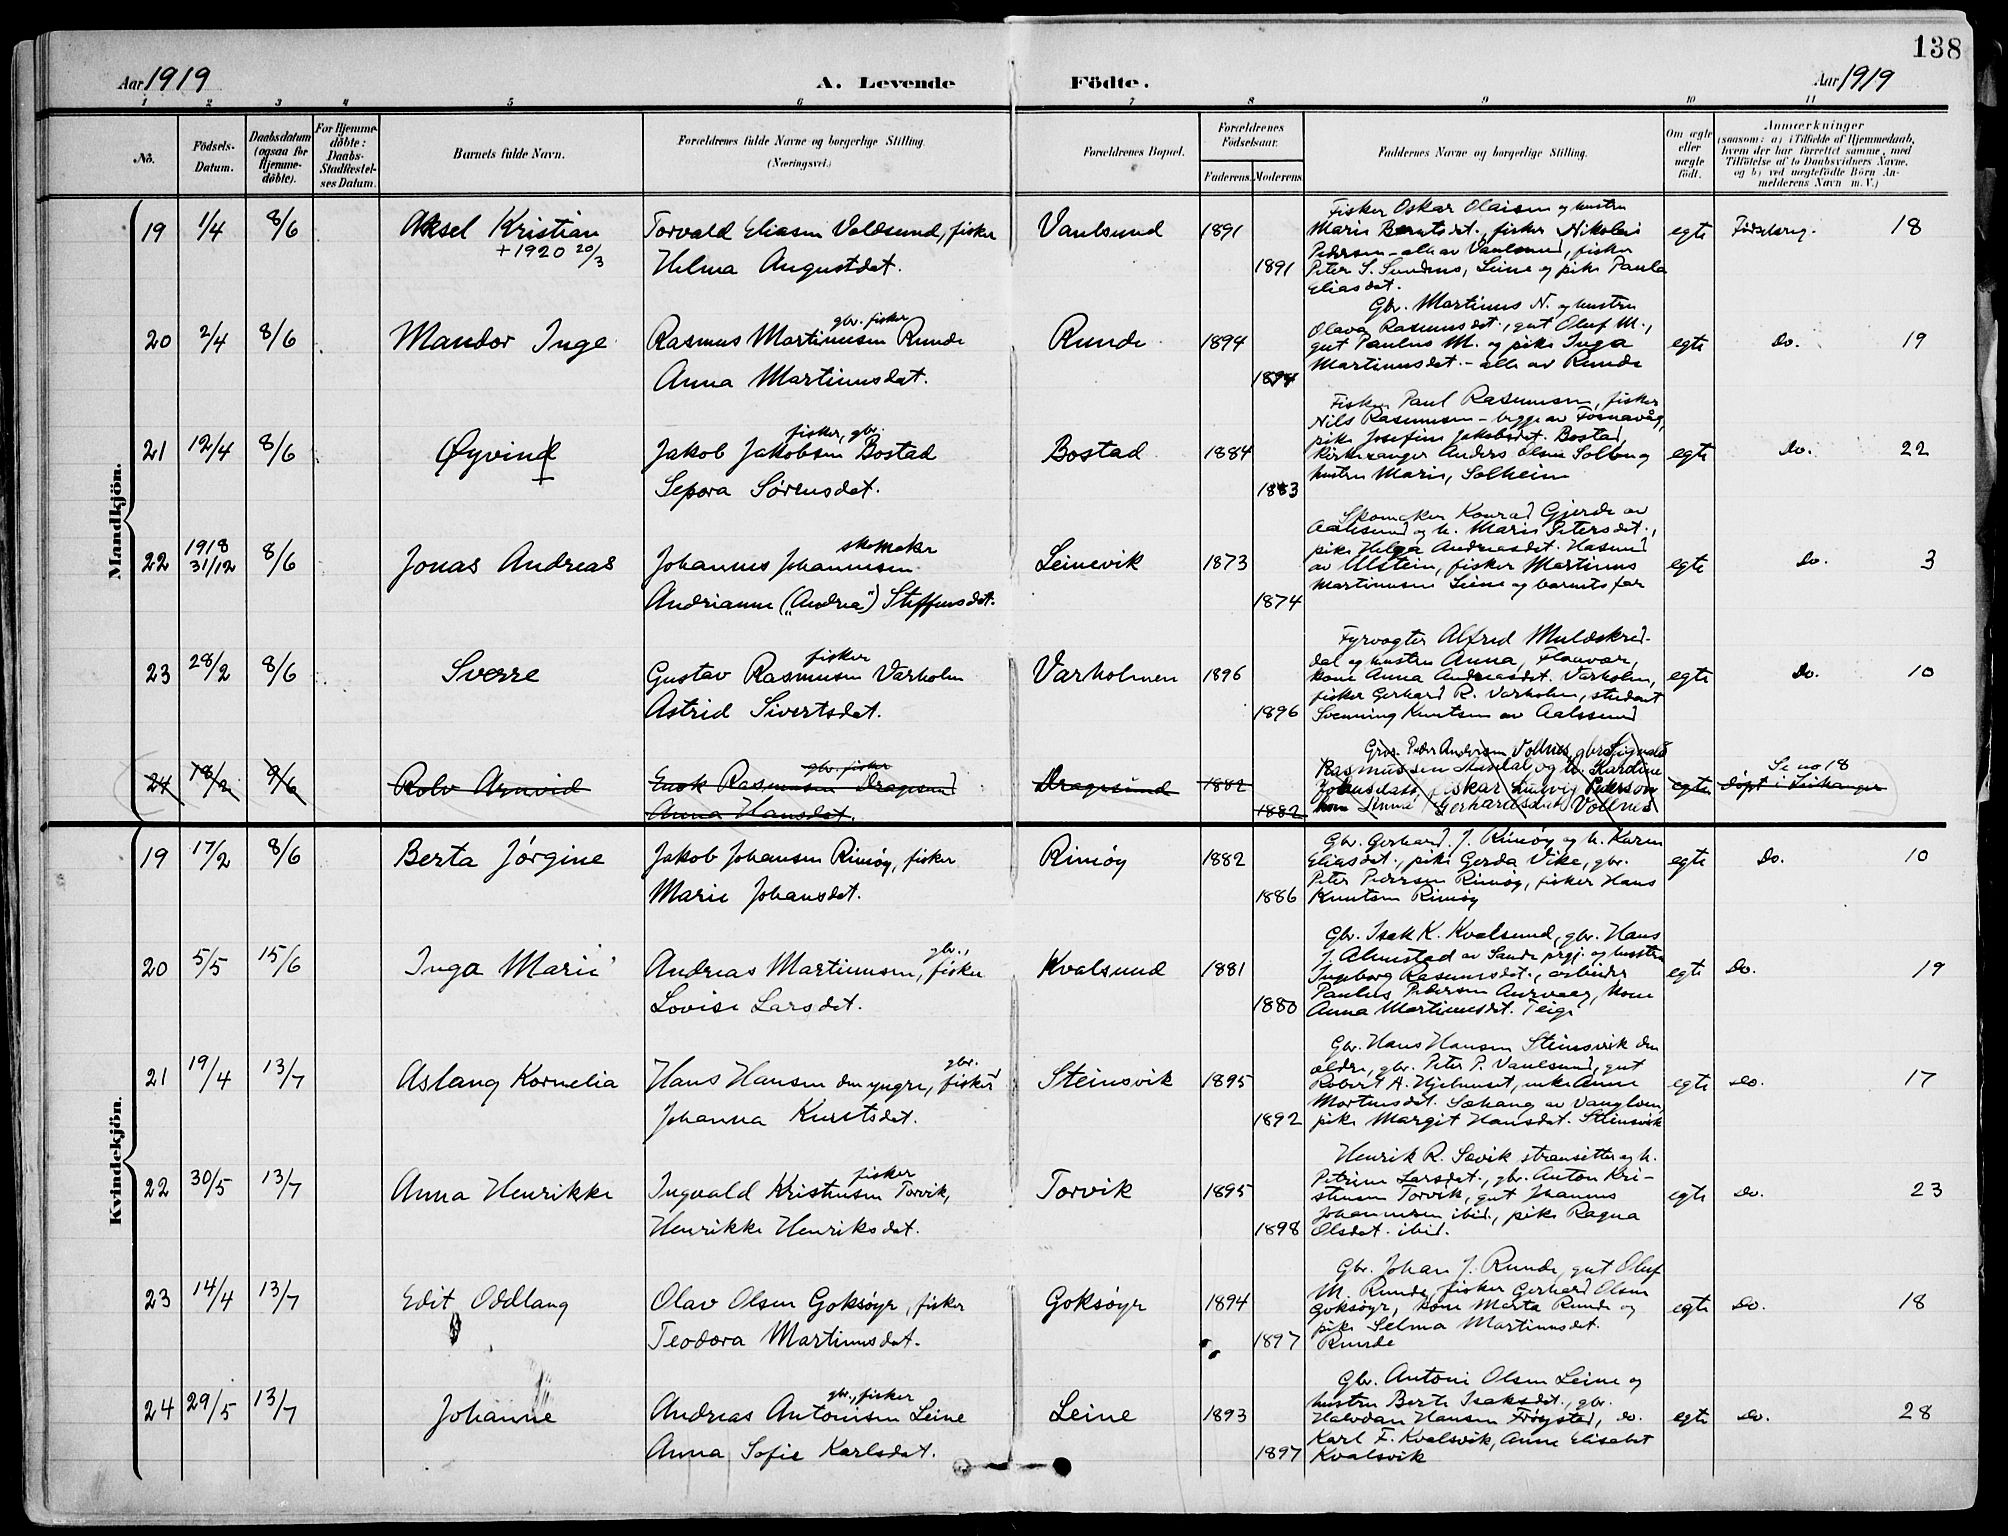 138
Aar 1919 A. Levende Födte. Aar 1919
1 2 3 4 5 6 7 8 9 10 11
No.
Födsels-
Datum.
Daabsdatum
(ogsaa for
Hjemme-
döbte).
For Hjemme-
döbte:
Daabs-
Stadfæstel-
ses Datum.
Barnets fulde Navn.
Forældrenes fulde Navne og borgerlige Stilling.
(Næringsvei.)
Forældrenes Bopæl.
Forældrenes
Födselsaar.
Faderens. Moderens.
Faddernes Navne og borgerlige Stilling.
Om ægte
eller
uægte
födt.
Anmærkninger
(saasom: a) i Tilfælde af Hjemmedaab,
hvem der har forrettet samme, med
Tilföielse af to Daabsvidners Navne,
og b) ved uægtefödte Börn An-
melderens Navn m. V.)
Mandkjön.
19 1/4 8/6 Aksel Kristian
+ 1920 20/3
Torvald Eliasen Voldsund, fisker
Helma Augustdat.
Vaulsund 1891
1891
Fisker Oskar Olaisen og hustru
Marie Berntsdat., fisker Nikolai
Pedersen - alle av Vaulsund, fisker
Peter S. Sundnes, Leine og pike Paula
Eliasdat.
egte 18
20 2/4 8/6 Mandor Inge
gbr. fisker
Rasmus Martinusen Runde
Anna Martinusdat.
Runde 1894
1894
Gbr. Martinus N. og hustru
Olava Rasmusdat., gut Oluf M.,
gut Paulus M. og pike Inga
Martinusdat. - alle av Runde
egte do. 19
21 12/4 8/6 Øyvind
fisker, gbr.
Jakob Jakobsen Bostad
Sepora Sørensdat.
Bostad 1884
1883
Fisker Paul Rasmusen, fisker
Nils Rasmusen - begge av Fosnavåg,
pike Josefine Jakobsdat. Bostad,
Kirkesanger Anders Olsen Solberg
hustru Marie, Solheim
egte do. 22
22 1918
31/12 8/6 Jonas Andreas
skomaker
Johannes Johannesen
Andrianne ("Andrea") Steffensdat.
Leinevik 1873
1874
Skomaker Konrad Gjerde av
Aalesund og h. Marie Petersdat.,
pike Helga Andreasdat. Hasund
av Ulstein, fisker Martinus
Martinusen Leine og barnets far
egte do. 3
23 28/2 8/6 Sverre
fisker
Gustav Rasmusen Varholm
Astrid Sivertsdat.
Varholmen 1896
1896
Fyrvogter Alfred Muldskred-
dal og hustru Anna, Flauvær,
kone Anna Andreasdat. Varholm,
fisker Gerhard R. Varholm, student
Svenning Knutsen av Aalesund
egte do. 10
24 18/2 9/6 Rolv Arnvid
gbr. fisker
Enok Rasmusen Dragsund
Anna Hansdat.
Dragesund 1882
1882
Gbr. Peder Andersen Vollnes, gbr Sigvald
Rasmussen og h. Kardine
Johansdatt, fiskar Ludvig Pederson
kone Gerhardsdat Vollnes
egte Se no 18
döpt i Leikanger
Kvindekjön.
19 17/2 8/6 Berta Jørgine
Jakob Johansen Rimøy, fisker
Marie Johansdat.
Rimøy 1882
1886
Gbr. Gerhard J. Rimøy og h. Karen
Eliasdat., pike Gerda Vike, gbr.
Peter Pedersen Rimøy, fisker Hans
Knutsen Rimøy
egte Do. 10
20 5/5 15/6 Inga Marie
gbr.,
Andreas Martinusen, fisker
Lovise Larsdat.
Kvalsund 1881
1880
Gbr. Isak K. Kvalsund, gbr. Hans
J. Almestad av Sande prgj. og hustru
Ingeborg Rasmusdat., arbeider
Paulus Pedersen Aurvaag, kone
Anna Martinusdat. Teige
egte Do. 19
21 19/4 13/7 Aslaug Kornelia
gbr.
Hans Hansen den yngre, fisker
Johanna Knutsdat.
Steinsvik 1895
1892
Gbr. Hans Hansen Steinsvik den
eldre, gbr. Peter P. Vaulsund, gut
Robert A. Hjelmeset, enke Anne
Mortensdat. Sæhaug av Vanylven,
pike Margit Hansdat. Steinsvik
egte do. 17
22 30/5 13/7 Anna Henrikke
fisker
Ingvald Kristensen Torvik,
Henrikke Henriksdat.
Torvik 1895
1898
Henrik R. Sævik stransitter og h.
Petrine Larsdat., gbr. Anton Kri-
stensen Torvik, gut Johannes
Johannesen ibid., pike Ragna
Olsdat. ibid.
egte do. 23
23 14/4 13/7 Edit Oddlaug
Olav Olsen Goksøyr, fisker
Teodora Martinusdat.
Goksøyr 1894
1897
Gbr. Johan J. Runde, gut Oluf
M. Runde, fisker Gerhard Olsen
Goksøyr, kone Marta Runde og
pike Selma Martinusdat.
Runde
egte do. 18
24 29/5 13/7 Johanne
gbr., fisker
Andreas Antonisen Leine
Anna Sofie Karlsdat.
Leine 1893
1897
Gbr. Antoni Olsen Leine og
hustru Berte Isaksdat., gbr.
Halvdan Hansen Frøystad, do.
Karl F. Kvalsvik, Anne Elisabet
Kvalsvik
egte do. 28